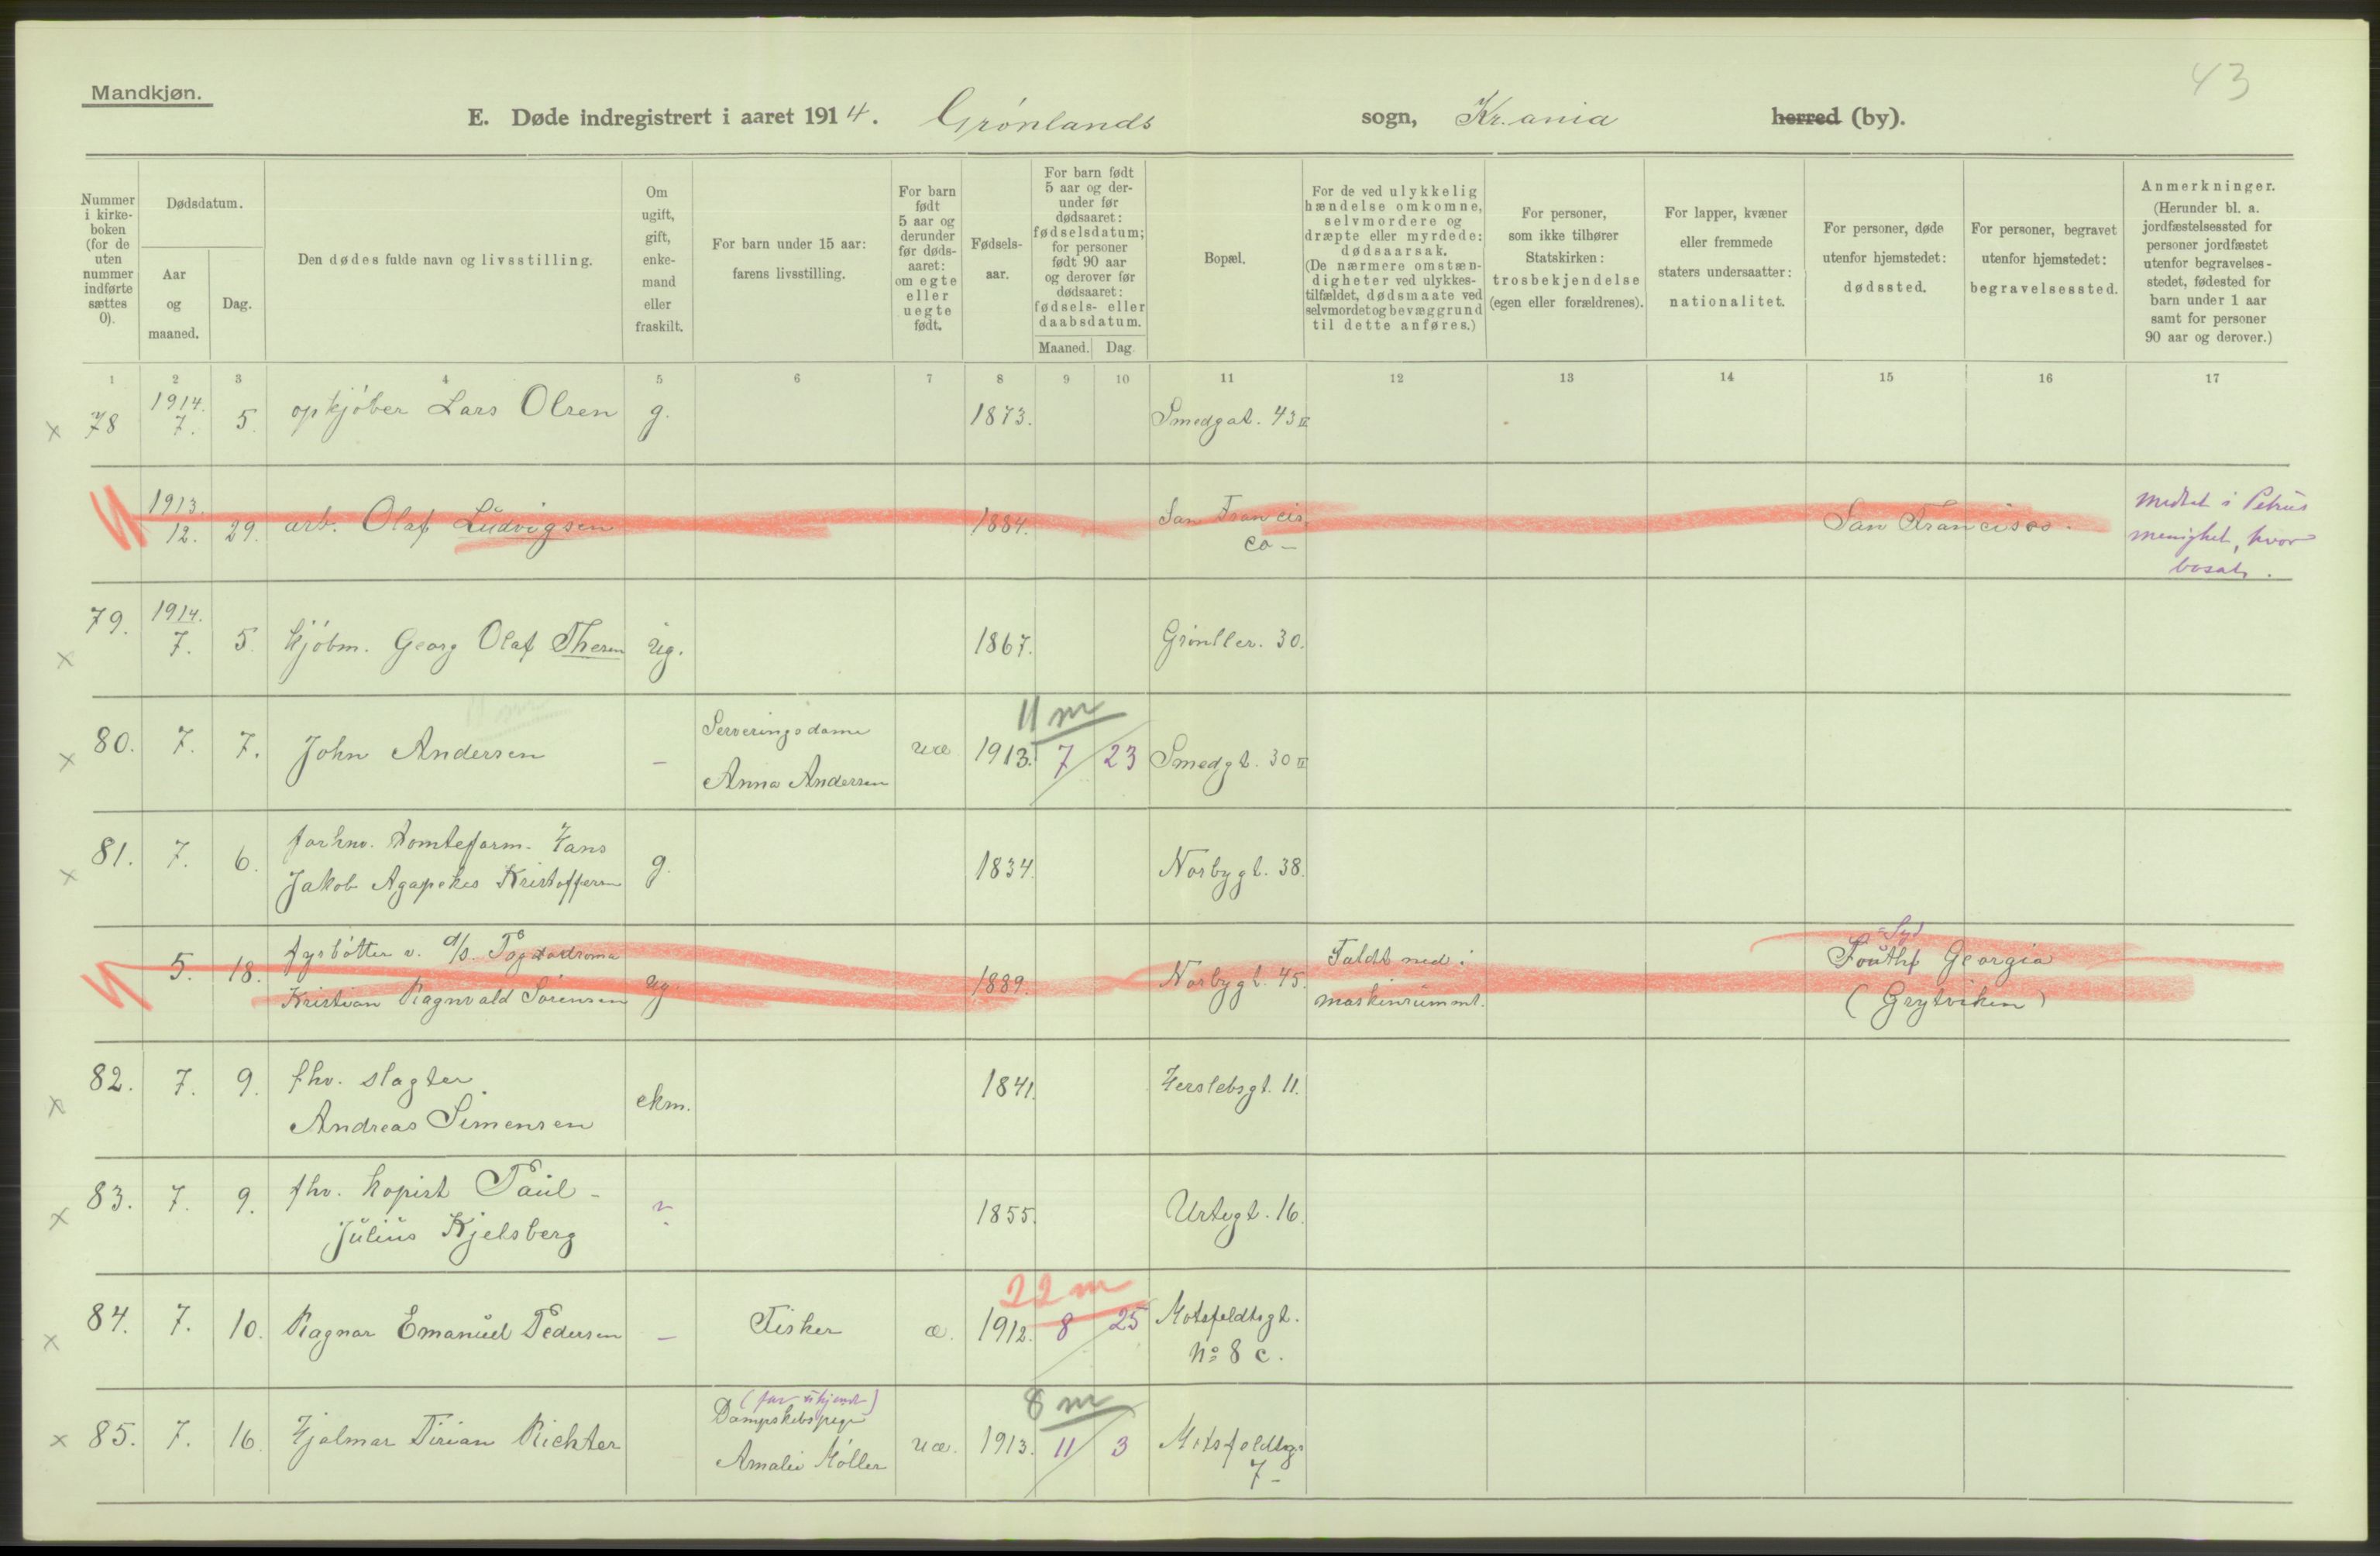 43
Mandkjøn.
E. Døde indregistrert i aaret 1914. Grönlands sogn, Kr.ania herred (by).
Nummer i kirkeboken (for de uten nummer indførte sættes 0).
Dødsdatum.
Aar og maaned.
Dag.
Den dødes fulde navn og livsstilling.
Om ugift, gift, enkemand eller fraskilt.
For barn under 15 aar: farens livsstilling.
For barn født 5 aar og derunder før dødsaaret: om egte eller uegte født.
Fødselsaar.
For barn født 5 aar og derunder før dødsaaret: fødselsdatum; for personer født 90 aar og derover før dødsaaret: fødsels- eller daabsdatum.
Maaned. Dag.
Bopæl.
For de ved ulykkelig hændelse omkomne, selvmordere og dræpte eller myrdede: dødsaarsak. (De nærmere omstændigheter ved ulykkestilfældet, dødsmaate ved selvmordet og bevæggrund til dette anføres.)
For personer, som ikke tilhører Statskirken: trosbekjendelse (egen eller forældrenes).
For lapper, kvæner eller fremmede staters undersaatter: nationalitet.
For personer, døde utenfor hjemstedet: dødssted.
For personer, begravet utenfor hjemstedet: begravelsessted.
Anmerkninger. (Herunder bl. a. jordfæstelsessted for personer jordfæstet utenfor begravelsesstedet, fødested for barn under 1 aar samt for personer 90 aar og derover.)
1 2 3 4 5 6 7 8 9 10 11 12 13 14 15 16 17
x 78 1914. 7. 5. opkjöber Lars Olsen g. 1873. Smedgat. 43 II
1913. 12. 29. arb. Olaf Ludvigsen 1884. San Francis
co - San Francisco. Medtat i Petrus
menighet, hvor
bosat.
x 79. 1914. 7. 5. Kjöbm. Georg Olaf Thesen ug. 1867. Grönller. 30.
11 m
x 80. 7. 7. John Andersen - Serveringsdame
Anna Andersen uæ 1913. 7 / 23 Smedgt. 30 II
x 81. 7. 6. forhnv. tomteform. Hans
Jakob Agapetus Kristoffersen g. 1834. Norbygt. 38.
5. 18. fyrböter v. d/s.
Kristian Ragnvald Sörensen ug. 1889. Norbygt. 45. Faldt ned i
maskinrummet. Syd
South Georgia
(Grytviken)
x 82. 7. 9. fhv. slagter
Andreas Simensen ekm. 1841. Herslebsgt. 11.
x 83. 7. 9. fhv. kopist Paul -
Julius Kjelsberg ? 1855. Urtegt. 16.
22 m
x 84. 7. 10. Ragnar Emanuel Pedersen - Fisker æ. 1912. 8 / 25 Motzfeldtsgt.
No 8 c.
8 m
x 85. 7. 16. Hjalmar Richter (far ukjendt)
Dampskibspige
Amalie Möller uæ. 1913. 11 / 3 Motzfeldtsg.
7 -